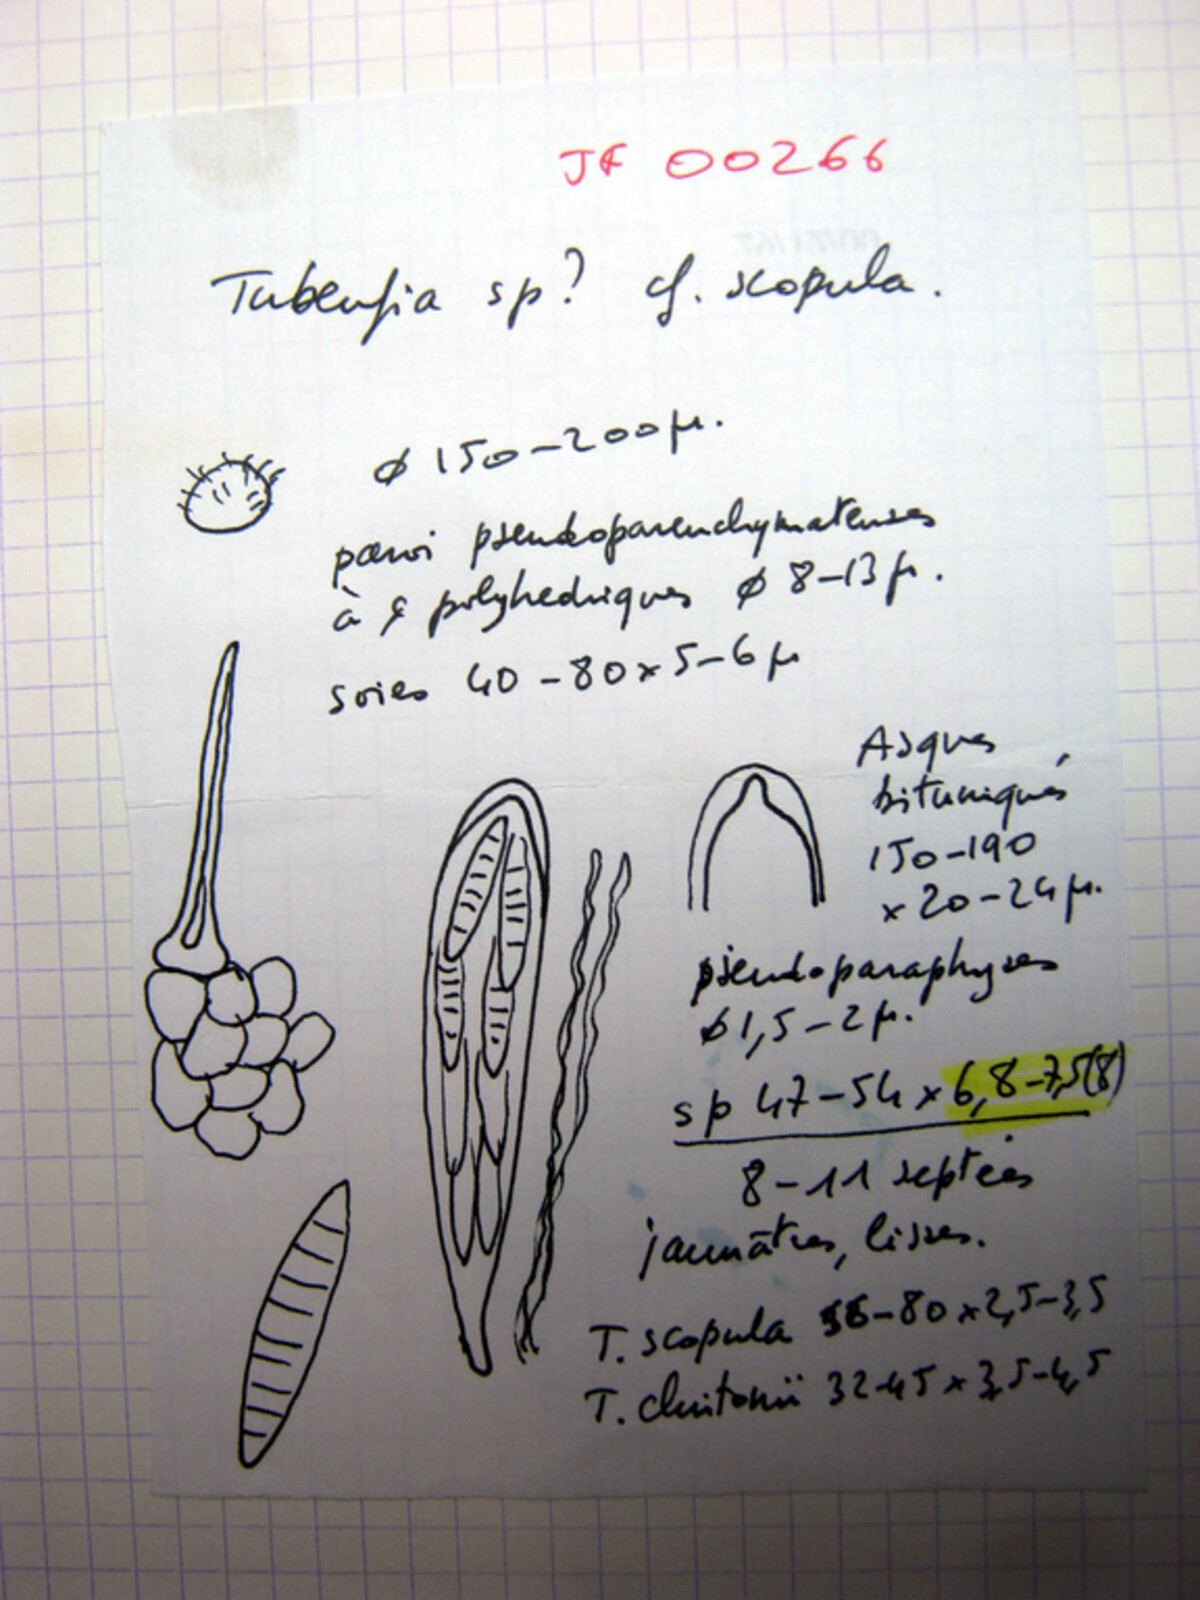 JF 00266
Tubeufia sp? cf. scopula.
ø 150-200 µ.
paroi pseudoparenchymateuses
à φ polyhedriques ø 8-13 µ.
soies 40-80 x 5-6 µ
Asques
bituniqués
150-190
x 20-24 µ.
pseudoparaphyses
ø 1,5-2 µ.
sp 47-54 x 6,8-7,5(8)
8-11 septées
jaunâtres, lisses.
T. scopula 56-80 x 2,5-3,5
T. clintonii 32-45 x 3,5-4,5